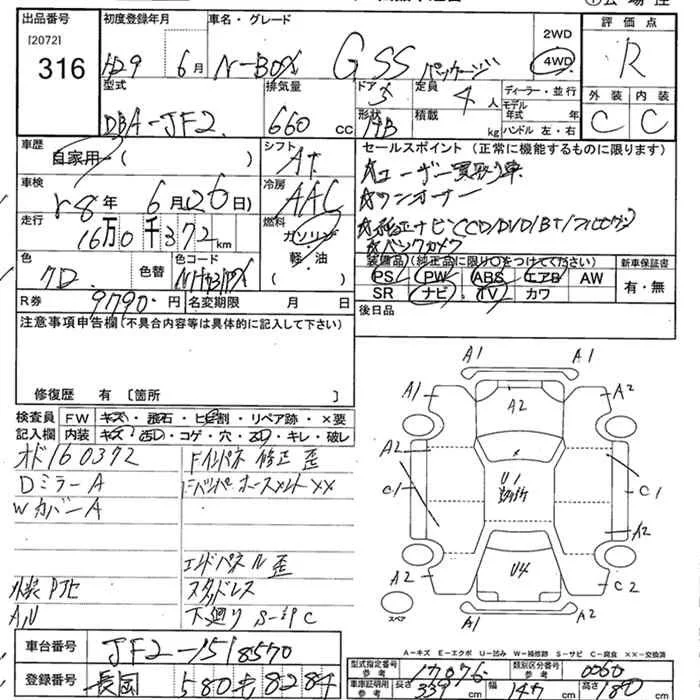 出品番号 初度登録年月 車名・グレード 2WD 評価点
[2072] 316 H29 6月 N-BOX GSSパッケージ 4WD R
型式 排気量 ドア 定員 ディーラー・並行 外装 内装
DBA-JF2 660cc 5 4人 モデル年式 年
形状 積載 kg ハンドル 左・右 C C
車歴 シフト セールスポイント(正常に機能するものに限ります)
自家用・( ) AT ☆ユーザー買取り車
車検 冷房 ☆ワンオーナー
r8年 6月(26日) AAC
走行 燃料
16万0千372km ガソリン・軽・油 ☆バックカメラ
色 色替 色コード ( ) 装備品(純正品に限り○をつけてください) 新車保証書
PS PW ABS エアB AW 有・無
R券 9790円 名変期限 月 日 SR ナビ TV カワ
注意事項申告欄(不具合内容等は具体的に記入して下さい) 後日品
修復歴 有 〔箇所 〕
検査員 FW キズ・飛石・ヒビ割・リペア跡・×要
記入欄 内装 キズ・汚・コゲ・穴・・キレ・破レ
オド160372 Fインパネ 修正 歪
Dミラー A ××
Wカバー A
エンドパネル 歪
スタッドレス
下廻り S-錆 C
A1 A1
A1 A2
A2
A2
C1 U1 C1
A2
U4
A2 C2
A1 A2
スペア
車台番号 JF2-1518570
A-キズ E-エクボ U-凹み W-補修跡 S-サビ C-腐食 ××-交換済
登録番号 長岡 580 を 8284
型式指定番号 参考 類別区分番号 参考 0060
車庫証明用 参考 長さ 339cm 幅 147cm 高さ 180cm